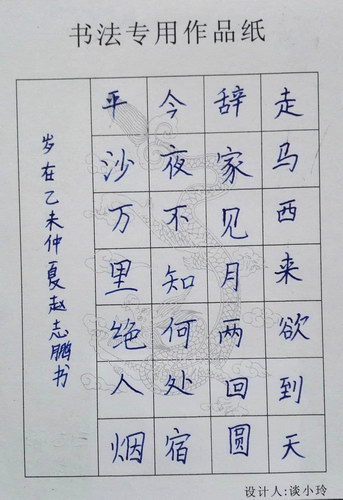 书法专用作品纸
走马西来欲到天
辞家见月两回圆
今夜不知何处宿
平沙万里绝人烟
岁在乙未仲夏赵志鹏书
设计人:谈小玲